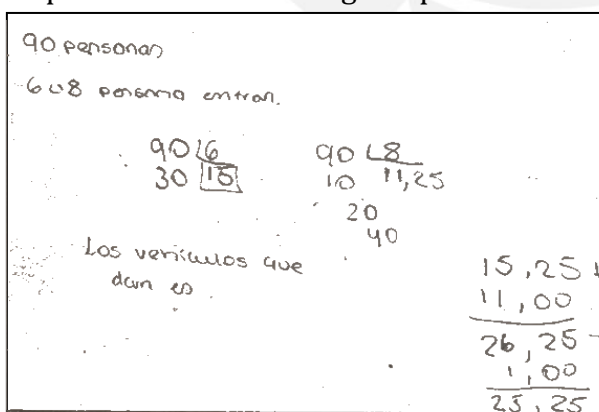 90 personas
6 u 8 persona entran.
90 6
30 15
90 8
10 11,25
20
40
Los vehiculos que
dan es
15,25 +
11,00
26,25 -
1,00
25,25